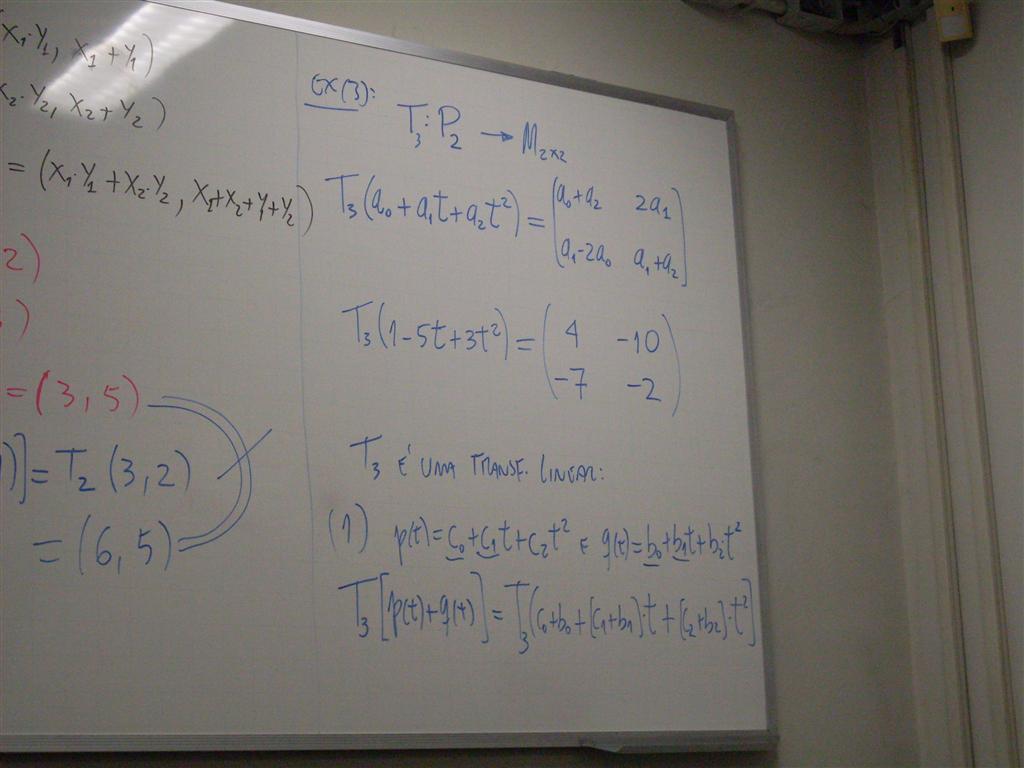 X1·Y1, X1+Y1)
X2·Y2, X2+Y2)
= (X1·Y1+X2·Y2, X1+X2+Y1+Y2)
2)
)
= (3, 5)
)]=T2 (3, 2)
= (6, 5)
EX(3):
T3: P2 → M2x2
T3(a0+a1t+a2t²)= (a0+a2 2a1
a1-2a0 a1+a2)
T3(1-5t+3t²)= (4 -10
-7 -2)
T3 É UMA TRANSF. LINEAR:
(1) p(t)=c0+c1t+c2t² E q(t)=b0+b1t+b2t²
T3[p(t)+q(t)]=T3(c0+b0+[c1+b1]·t+[c2+b2]·t²]